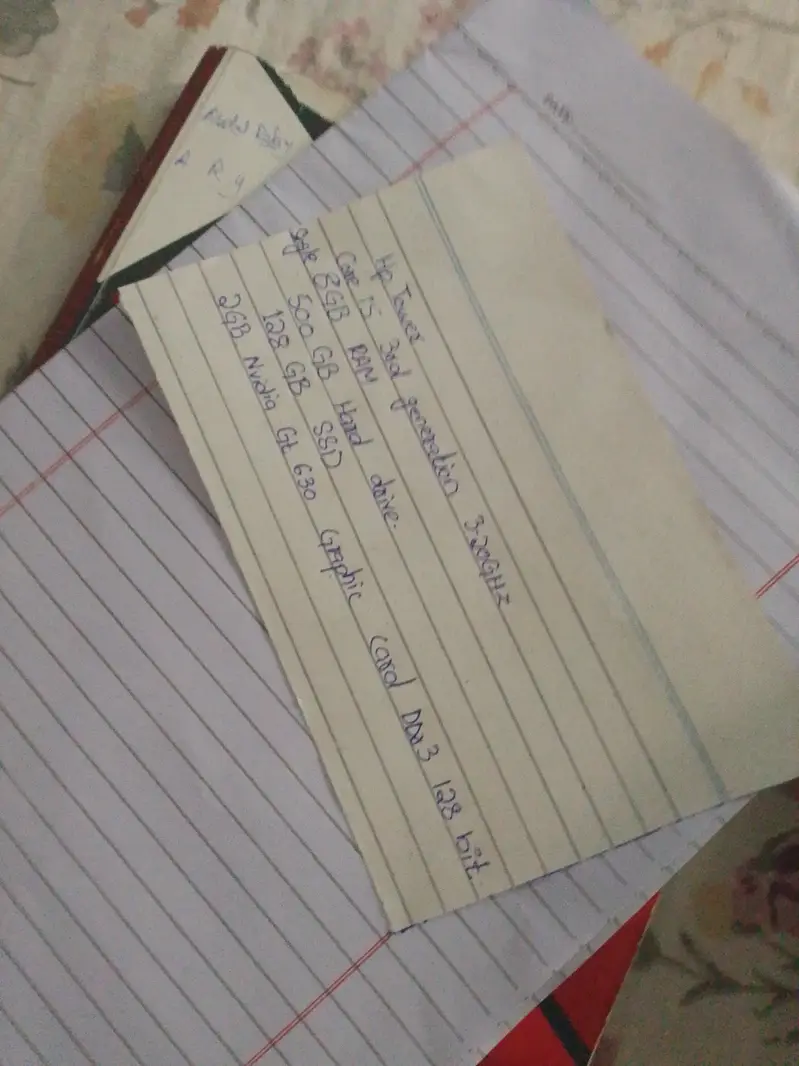 Hp Tower
Core i5 3rd generation 3.20GHz
Single 8GB RAM
500 GB Hard drive.
128 GB SSD
2GB Nvidia Gt 630 Graphic Card DDR3 128 bit.